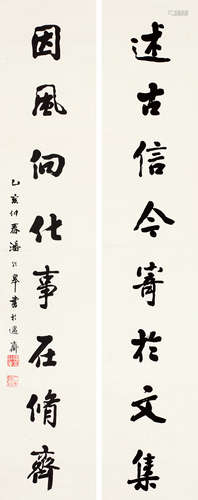 述古信今寄於文集
因風向化事在脩齊
乙亥仲春潘公皋書於退齋